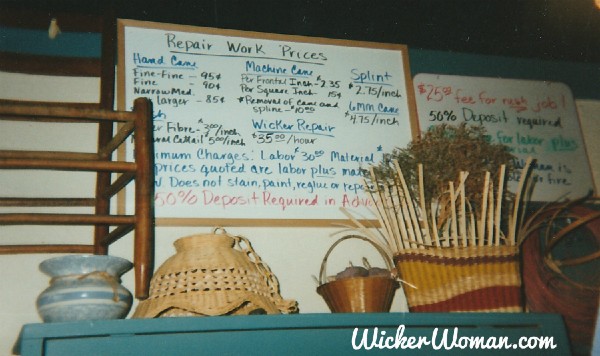 Repair Work Prices
Hand Cane
Fine-Fine - 95¢
Fine - 90¢
Narrow Med.
larger - 85¢
Machine Cane
Per Frontal Inch - 2.35
Per Square Inch 15¢
*Removal of cane and
spline - $10.00
Splint
$2.75/inch
6mm Cane
$4.75/inch
Fibre - 3.00/inch
/inch
Wicker Repair
$35.00/hour
Charges: Labor $30.00 Material
prices quoted are labor plus
Does not stain, paint, reglue or
50% Deposit Required in
$25.00 fee for rush job!
50% Deposit required
for labor plus
is
or fire
WickerWoman.com